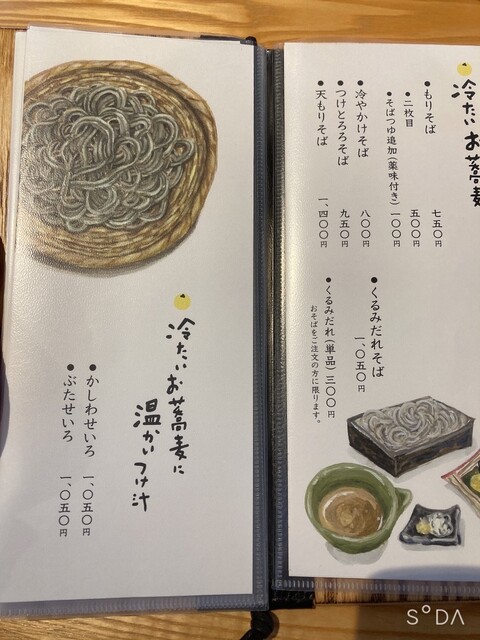 冷たいお蕎麦
もりそば 七五〇円
二枚目 五〇〇円
そばつゆ追加(薬味付き) 一〇〇円
冷やかけそば 八〇〇円
つけとろろそば 九五〇円
天もりそば 一、四〇〇円
くるみだれそば 一、〇五〇円
くるみだれ(単品) 三〇〇円
おそばをご注文の方に限ります。
冷たいお蕎麦に
温かいつけ汁
かしわせいろ 一、〇五〇円
ぶたせいろ 一、〇五〇円
SODA